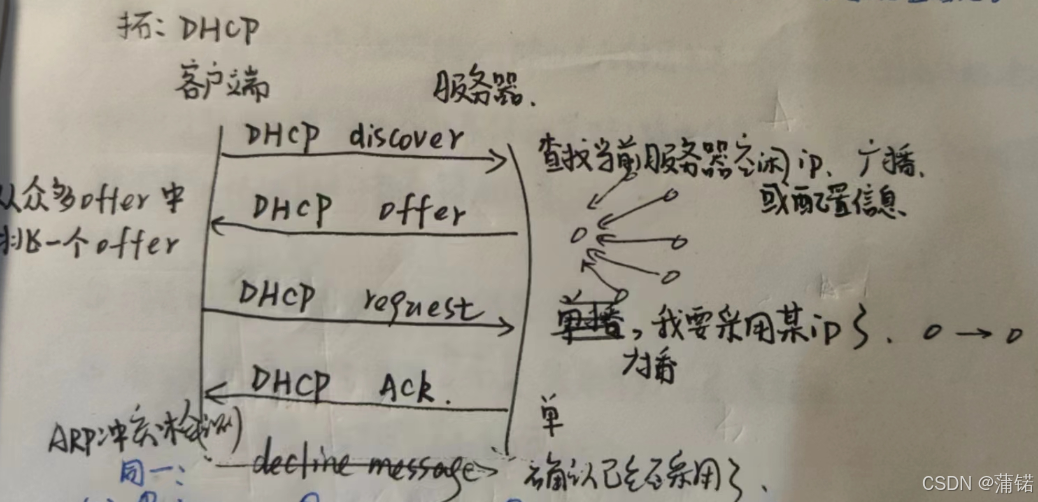 拓: DHCP
客户端 服务器.
DHCP discover
查找当前服务器空闲ip、广播、
或配置信息
从众多offer中
挑一个offer
DHCP offer
DHCP request
单播,我要采用某ip了.
广播
DHCP Ack.
单
ARP冲突
decline message
确认已经采用了.
同一:
CSDN @蒲锘